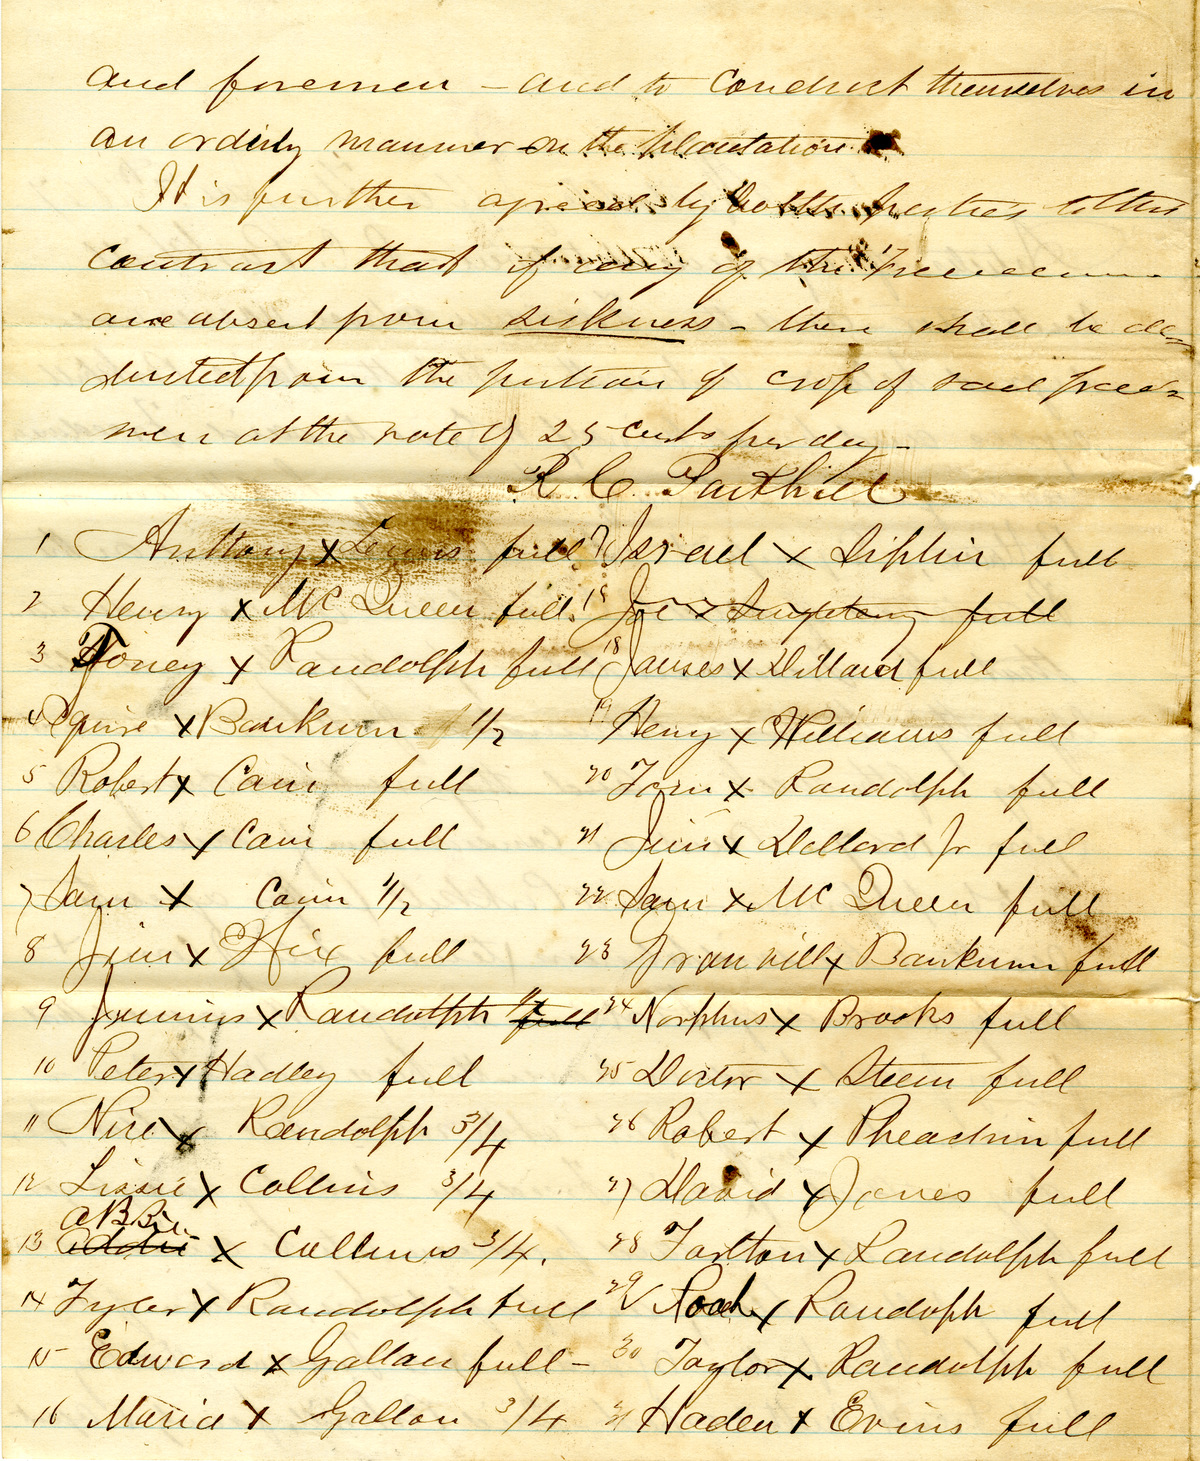 and foremen – and to conduct themselves in
an orderly manner on the plantation
It is further agreed by both parties to this
contract that if any of the Freedmen
are absent from sickness – there shall be de=
ducted from the portion of crop of said freed=
men at the rate of 25 cents per day –
R C
1 Anthony x Lewis full
2 Henry x McQueen full
3 Toney x Randolph full
4 Squire x Bankum 1/2
5 Robert x Cain full
6 Charles x Cain full
7 Sam x Cain 1/2
8 Jim x Hix full
9 Junius x Randolph full
10 Peter x Hadley full
11 x Randolph 3/4
12 Lizzie x Collins 3/4
aBBie
13 Eddie x Collins 3/4.
14 Tyler x Randolph full
15 Edward x Gallan full –
16 Maria x Gallan 3/4
17 Israel x full
18 Joe x full
18 James x Dillard full
19 Henry x Williams full
20 Tom x Randolph full
21 Jim x Dillard Jr full
22 Sam x McQueen full
23 Granvill x Bankum full
24 Norphus x Brooks full
25 Doctor x Steen full
26 Robert x full
27 David x Jones full
28 Tarlton x Randolph full
29 x Randolph full
30 Taylor x Randolph full
31 Haden x Evins full